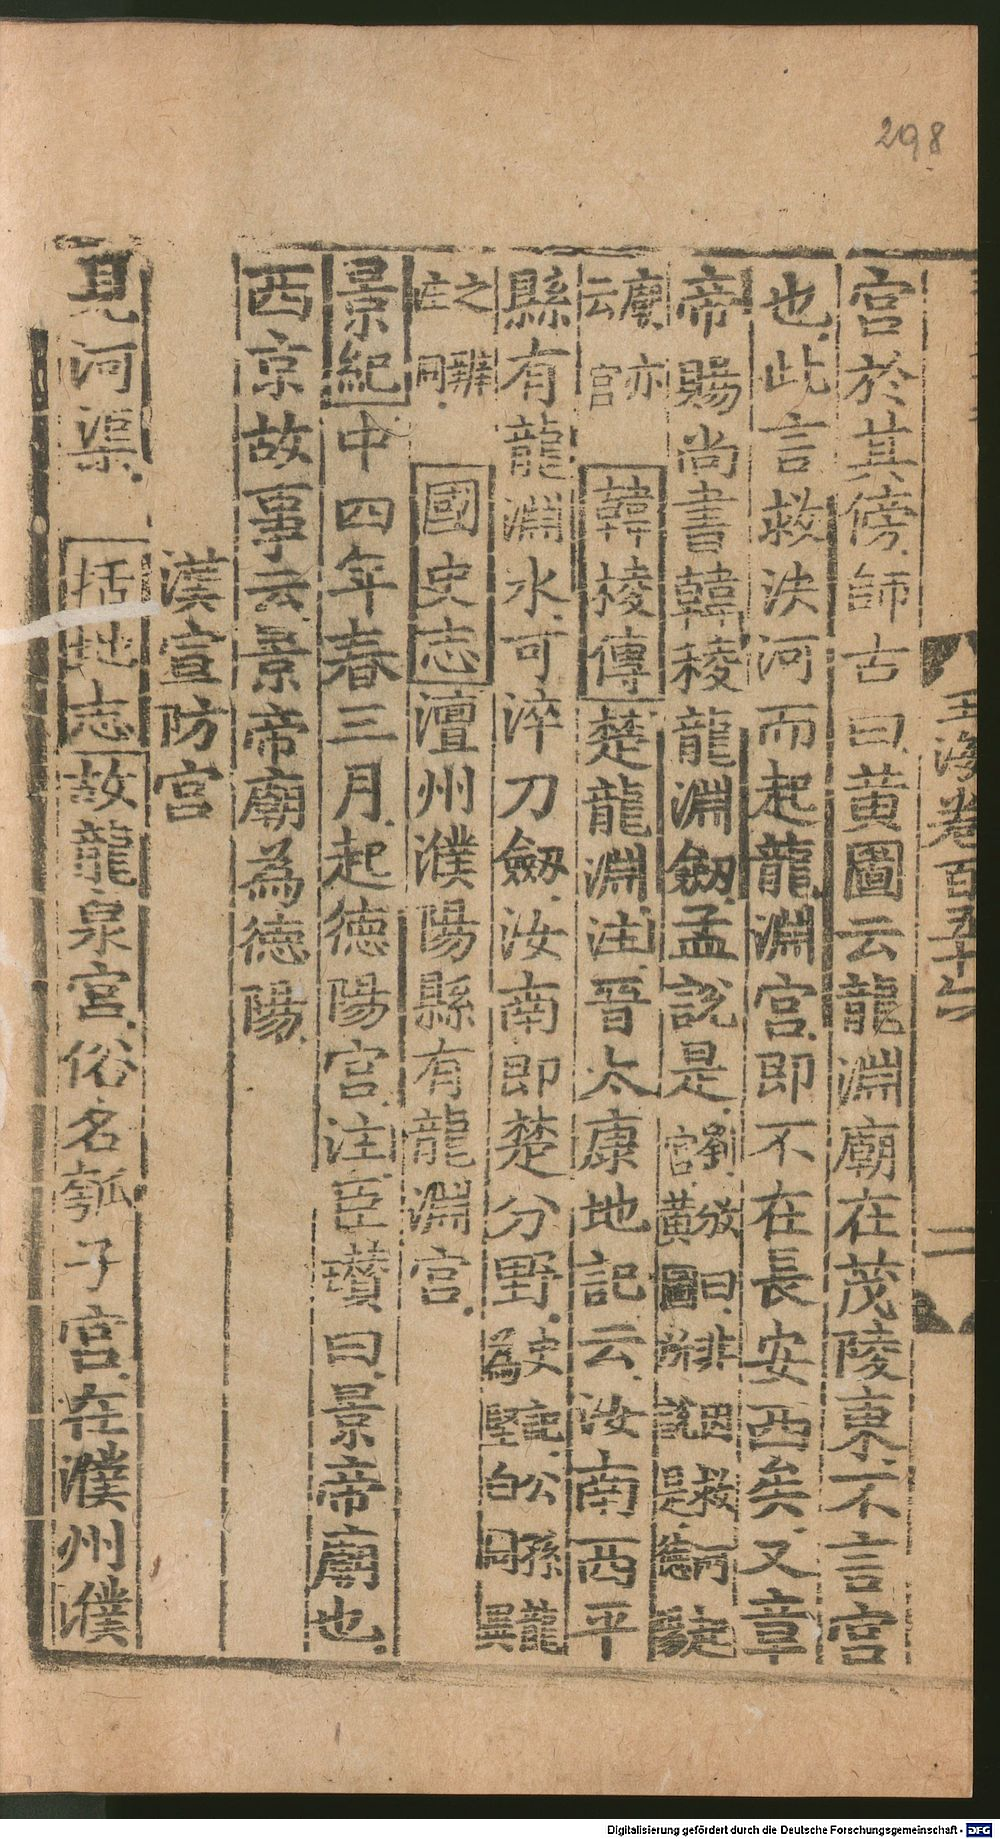 298
玉海卷百五十六
二
宮於其傍師古曰黄圖云龍淵廟在茂陵東不言宮
也此言救決河而起龍淵宮即不在長安西矣又章
帝賜尚書韓稜龍淵劔孟說是劉攽曰非因救河㝎
宮黄圖所說是德陽
廟亦
云宮
韓稜傳楚龍淵注晋太康地記云汝南西平
縣有龍淵水可淬刀劔汝南即楚分野史記公孫龍
為堅白同異
之辨
注同
國史志澶州濮陽縣有龍淵宮
景紀中四年春三月起德陽宮注臣瓚曰景帝廟也
西京故事云景帝廟為德陽
漢宣防宮
見河渠括地志故龍泉宮俗名瓠子宮在濮州濮
Digitalisierung gefördert durch die Deutsche Forschungsgemeinschaft - DFG